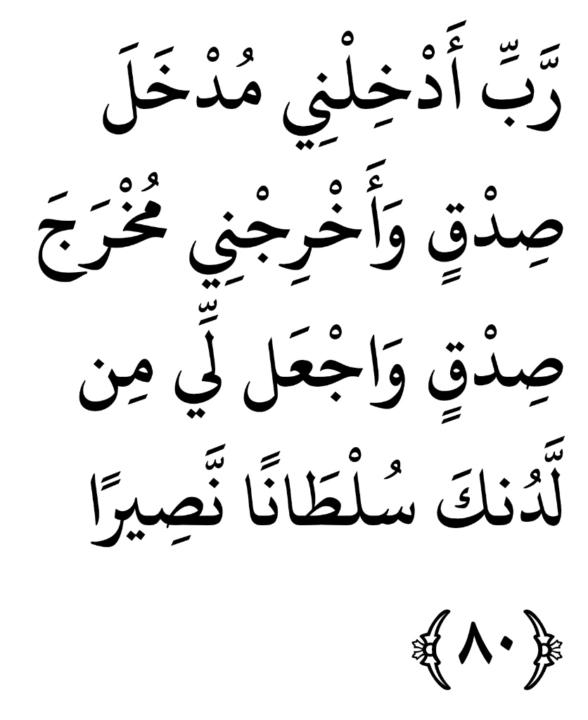 رَّبِّ أَدْخِلْنِي مُدْخَلَ
صِدْقٍ وَأَخْرِجْنِي مُخْرَجَ
صِدْقٍ وَاجْعَل لِّي مِن
لَّدُنكَ سُلْطَانًا نَّصِيرًا
﴿٨٠﴾